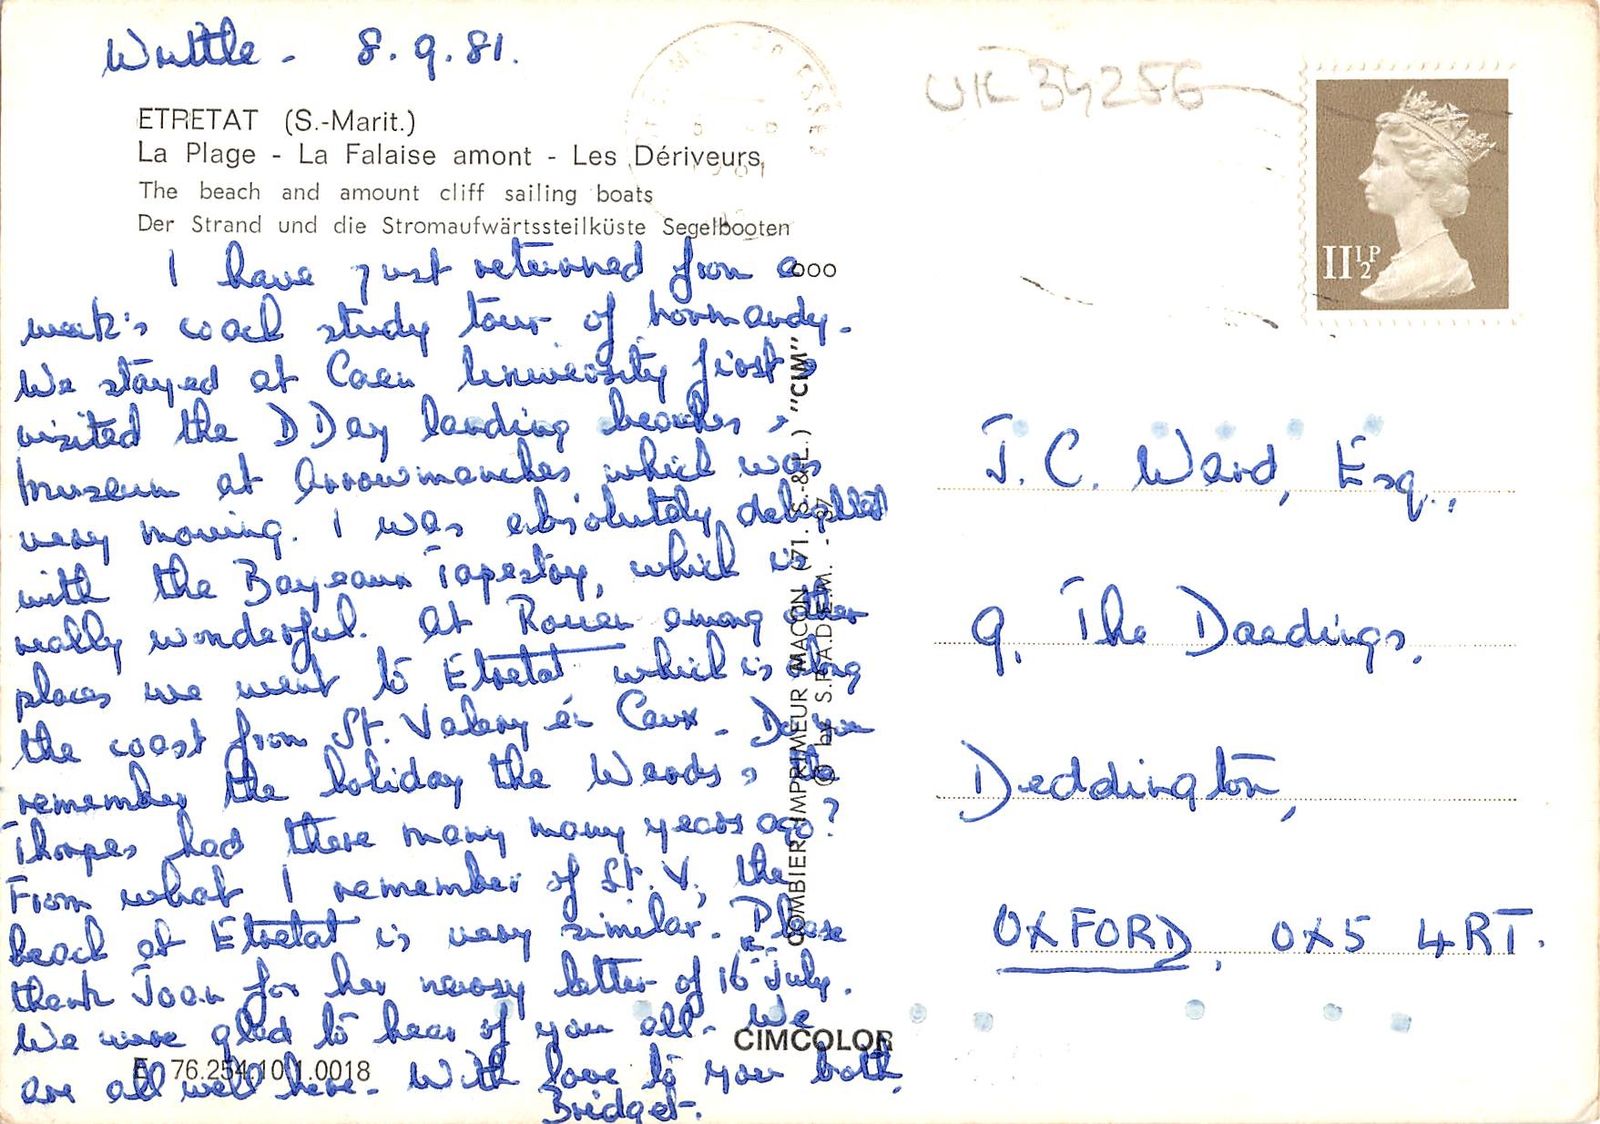 Writtle - 8.9.81.
UK 34256
ETRETAT (S.-Marit.)
La Plage - La Falaise amont - Les Dériveurs
The beach and amount cliff sailing boats
Der Strand und die Stromaufwärtssteilküste Segelbooten
11½P
I have just returned from a
week's coach study tour of Normandy.
We stayed at Caen University first,
visited the D Day landing beaches,
Museum at Arrowmanches which was
very moving. I was absolutely delighted
with the Bayeaux Tapestry, which is
really wonderful. At Rouen among other
places we went to Etretat which is along
the coast from St. Valery én Caux - Do you
remember the holiday the Wards, the
Thorpes had there many many years ago?
From what I remember of St. V, the
beach at Etretat is very similar. Please
thank Joan for her newsy letter of 16th July.
We were glad to hear of you all. We
are all well here. With love to you both,
Bridget.
COMBIER IMPRIMEUR MACON (71. S.-&-L.) "CIM"
© by S.P.A.D.E.M. - 97
CIMCOLOR
E. 76.254.10.1.0018
J. C. Ward, Esq.,
9, The Daedings,
Deddington,
OXFORD, OX5 4RT.